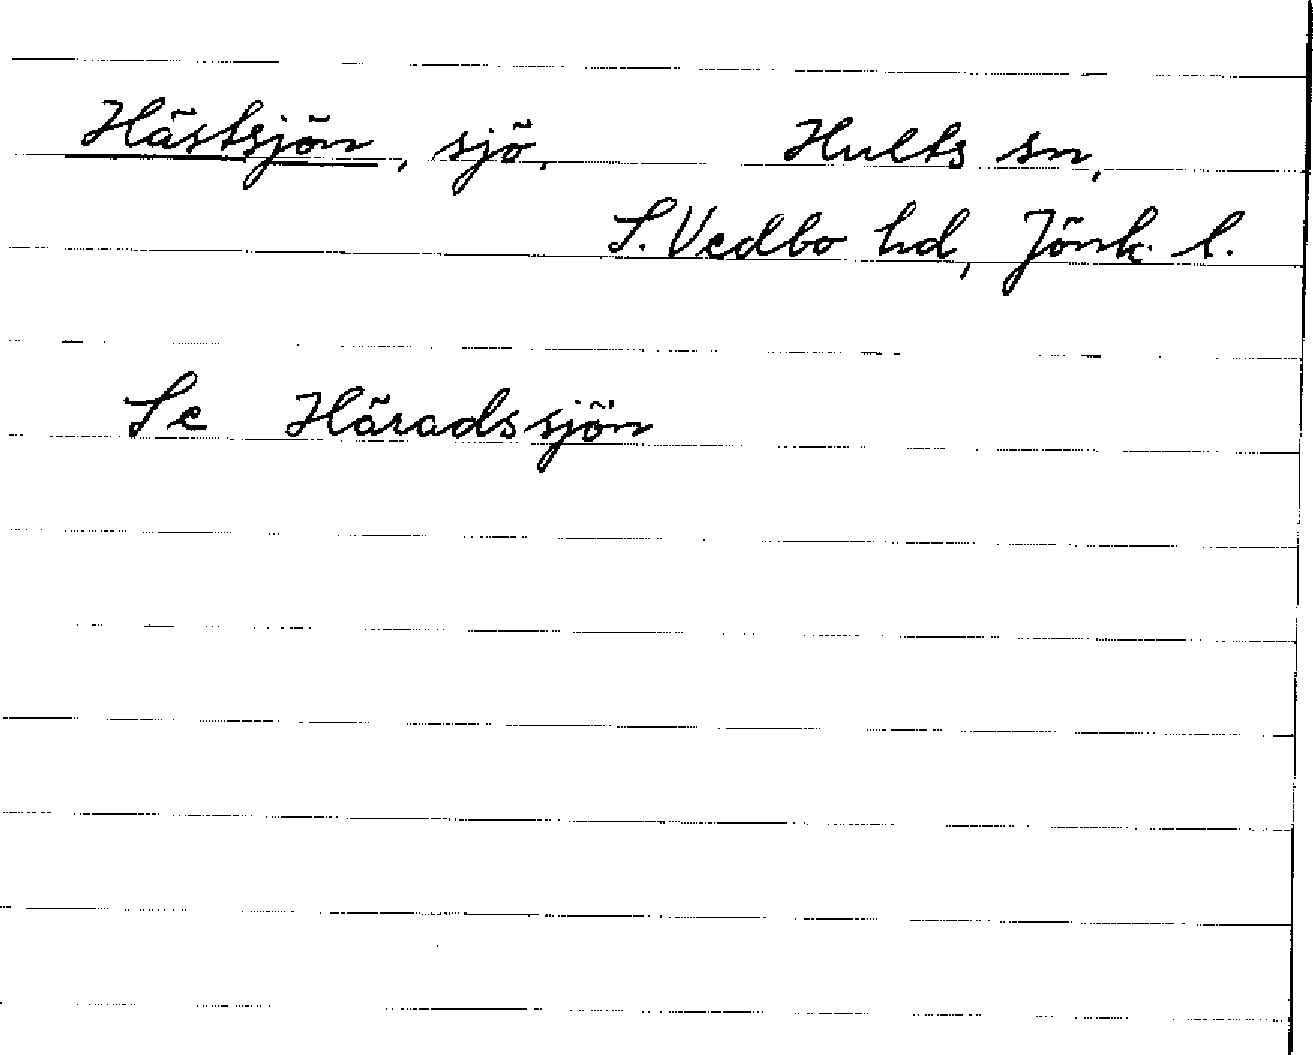 Hästsjön, sjö. Hults sn,
S. Vedbo hd, Jönk. l.
Se Häradssjön